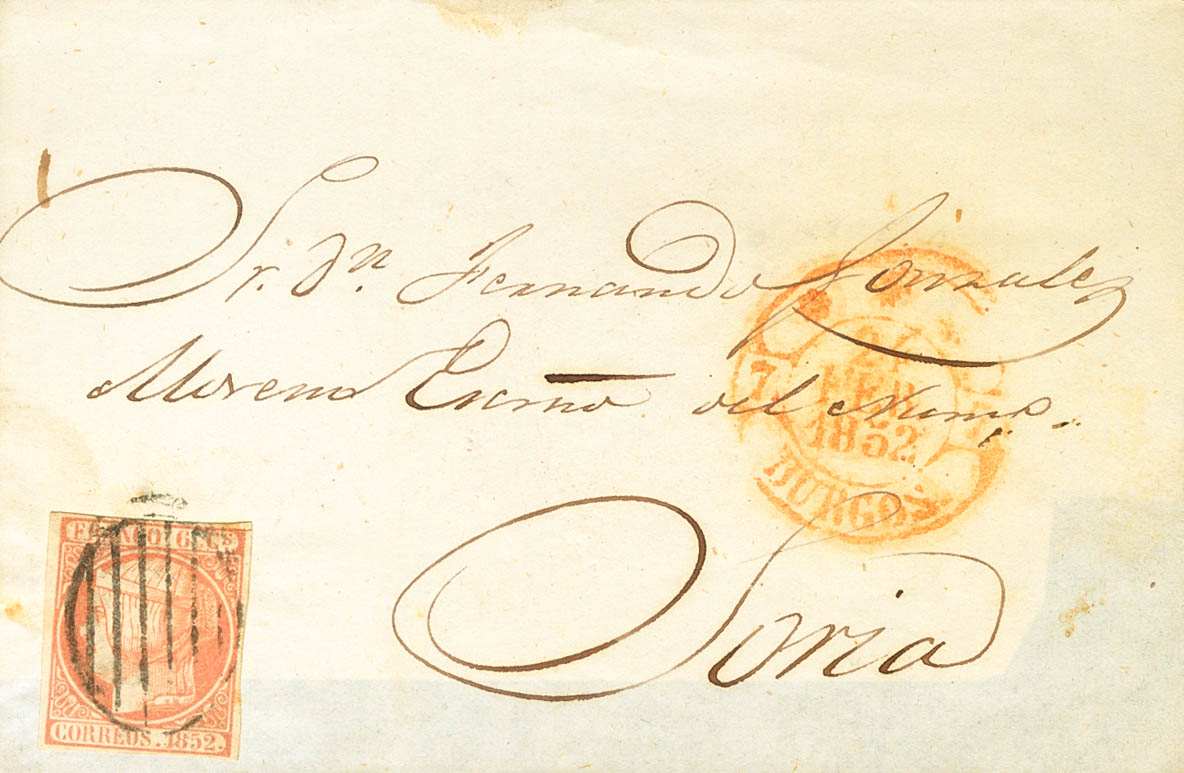 Sr. Dn. Fernando Gonzalez
Moreno Escrno del Numo.
Soria
24
FEB
1852
BURGOS
FRANCO 6 CS
CORREOS. 1852.